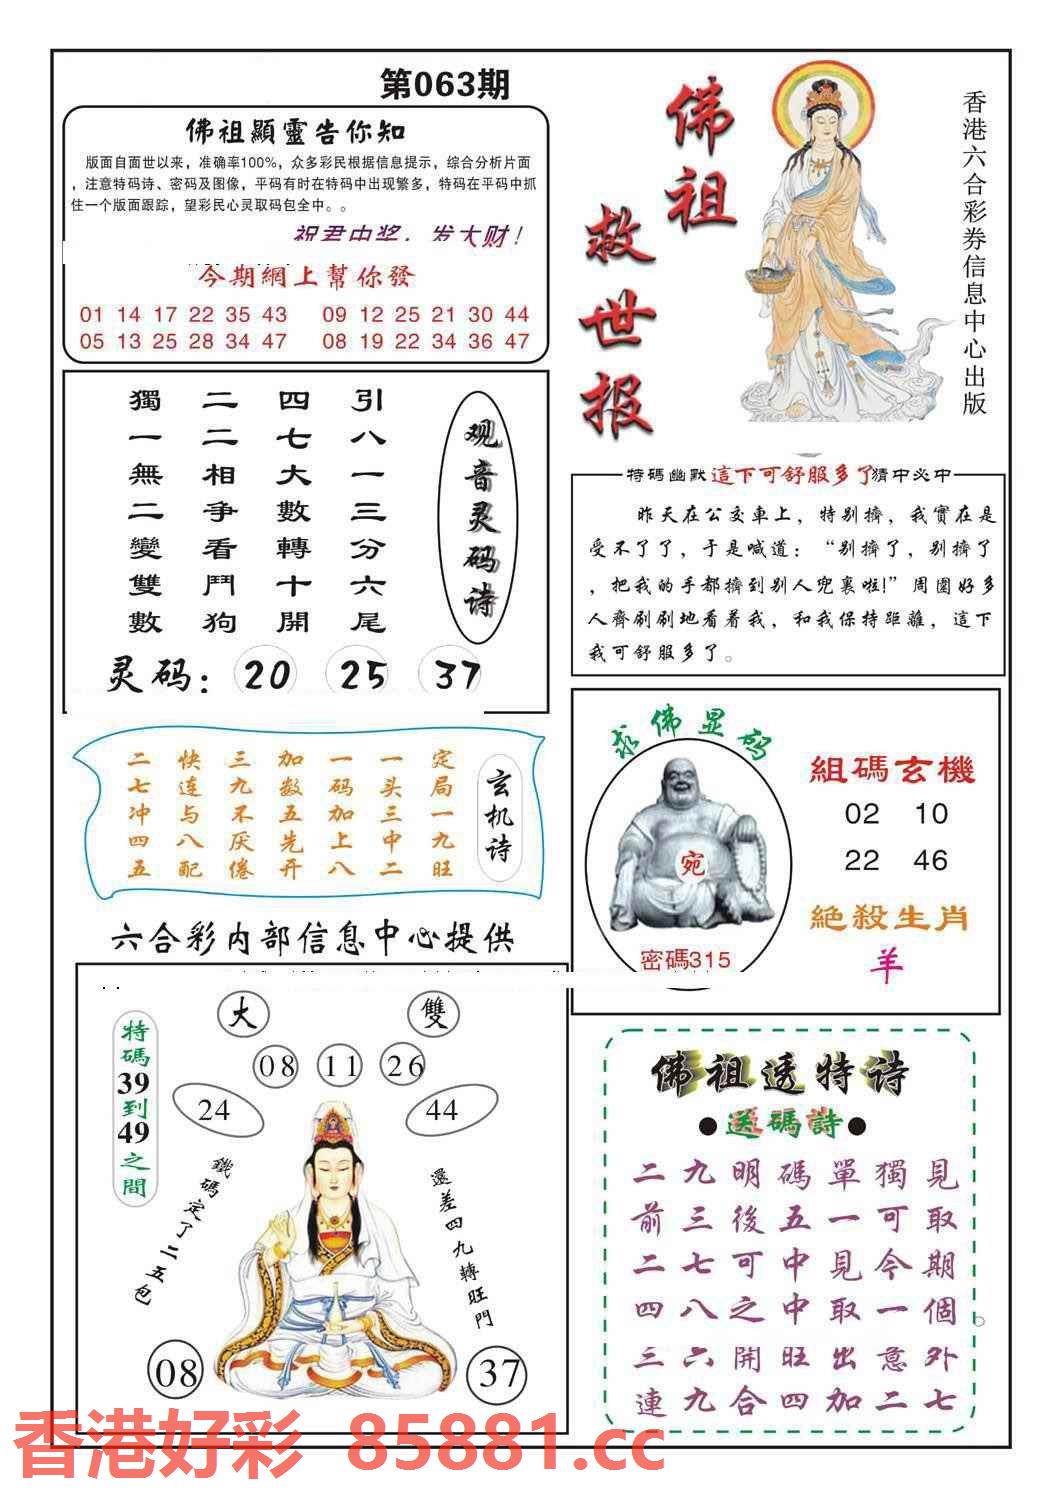 第063期
佛祖顯靈告你知
版面自面世以来，准确率100%，众多彩民根据信息提示，综合分析片面
，注意特码诗、密码及图像，平码有时在特码中出现繁多，特码在平码中抓
住一个版面跟踪，望彩民心灵取码包全中。。
祝君中奖，发大财！
今期網上幫你發
01 14 17 22 35 43 09 12 25 21 30 44
05 13 25 28 34 47 08 19 22 34 36 47
佛祖
救世报
香港六合彩券信息中心出版
观音灵码诗
引八一三分六尾
四七大數轉十開
二二相争看鬥狗
獨一無二變雙數
灵码：20 25 37
特碼幽默這下可舒服多了猜中必中
昨天在公交車上，特别擠，我實在是
受不了了，于是喊道：“别擠了，别擠了
，把我的手都擠到别人兜裏啦!”周圍好多
人齊刷刷地看着我，和我保持距離，這下
我可舒服多了。
玄机诗
定局一九旺
一头三中二
一码加上八
加数五先开
三九不厌倦
快连与八配
二七冲四五
求佛显码
宛
密碼315
組碼玄機
02 10
22 46
絶殺生肖
羊
六合彩内部信息中心提供
大 雙
08 11 26
24 44
特碼39到49之間
鐵碼定了二五包
還差四九轉旺門
08 37
佛祖透特诗
●送碼詩●
二九明碼單獨見
前三後五一可取
二七可中見今期
四八之中取一個。
三六開旺出意外
連九合四加二七
香港好彩 85881.cc